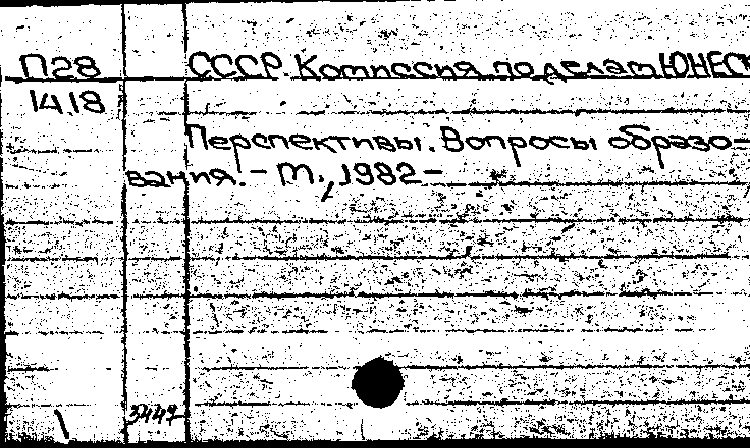 П28 СССР. Комиссия по делам ЮНЕСК
14.18
Перспективы. Вопросы образо-
вания. - М., 1982 -
3449